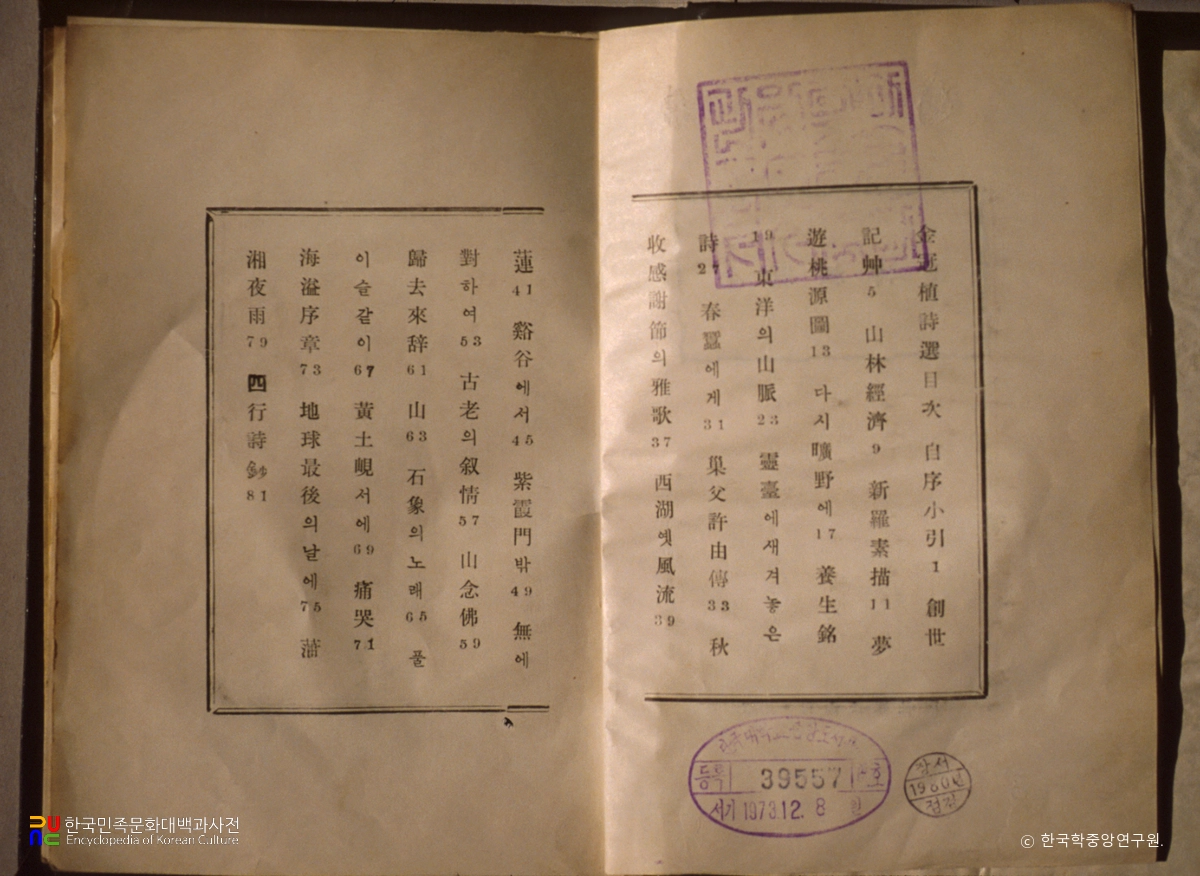 金冠植詩選目次 自序小引 1 創世
記艸 5 山林經濟 9 新羅素描 11 夢
遊桃源圖 13 다시 曠野에 17 養生銘
19 東洋의 山脈 23 靈臺에 새겨놓은
詩 27 春蠶에게 31 巢父許由傳 33 秋
收感謝節의 雅歌 37 西湖옛風流 39
蓮 41 谿谷에서 45 紫霞門밖 49 無에
對하여 53 古老의 叙情 57 山念佛 59
歸去來辞 61 山 63 石象의 노래 65 풀
이슬같이 67 黃土峴서에 69 痛哭 71
海溢序章 73 地球最後의 날에 75 瀟
湘夜雨 79 四行詩鈔 81
등록 39557 호
서기 1973.12. 8 일
장서
1980년
점검
한국민족문화대백과사전
Encyclopedia of Korean Culture
© 한국학중앙연구원.